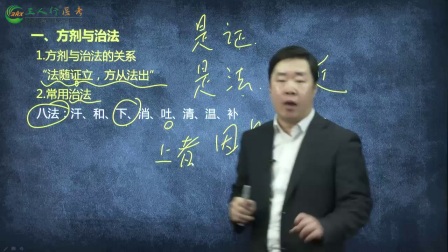 三人行医考
一、方剂与治法
1.方剂与治法的关系
“法随证立，方从法出”
2.常用治法
八法：汗、和、下、消、吐、清、温、补
是证
是法
上者 因